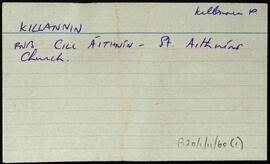 Killannin P.
KILLANNIN
CILL ÁITHNÍN - St. Aithnín's
Church.
P120/1/1/60(1)